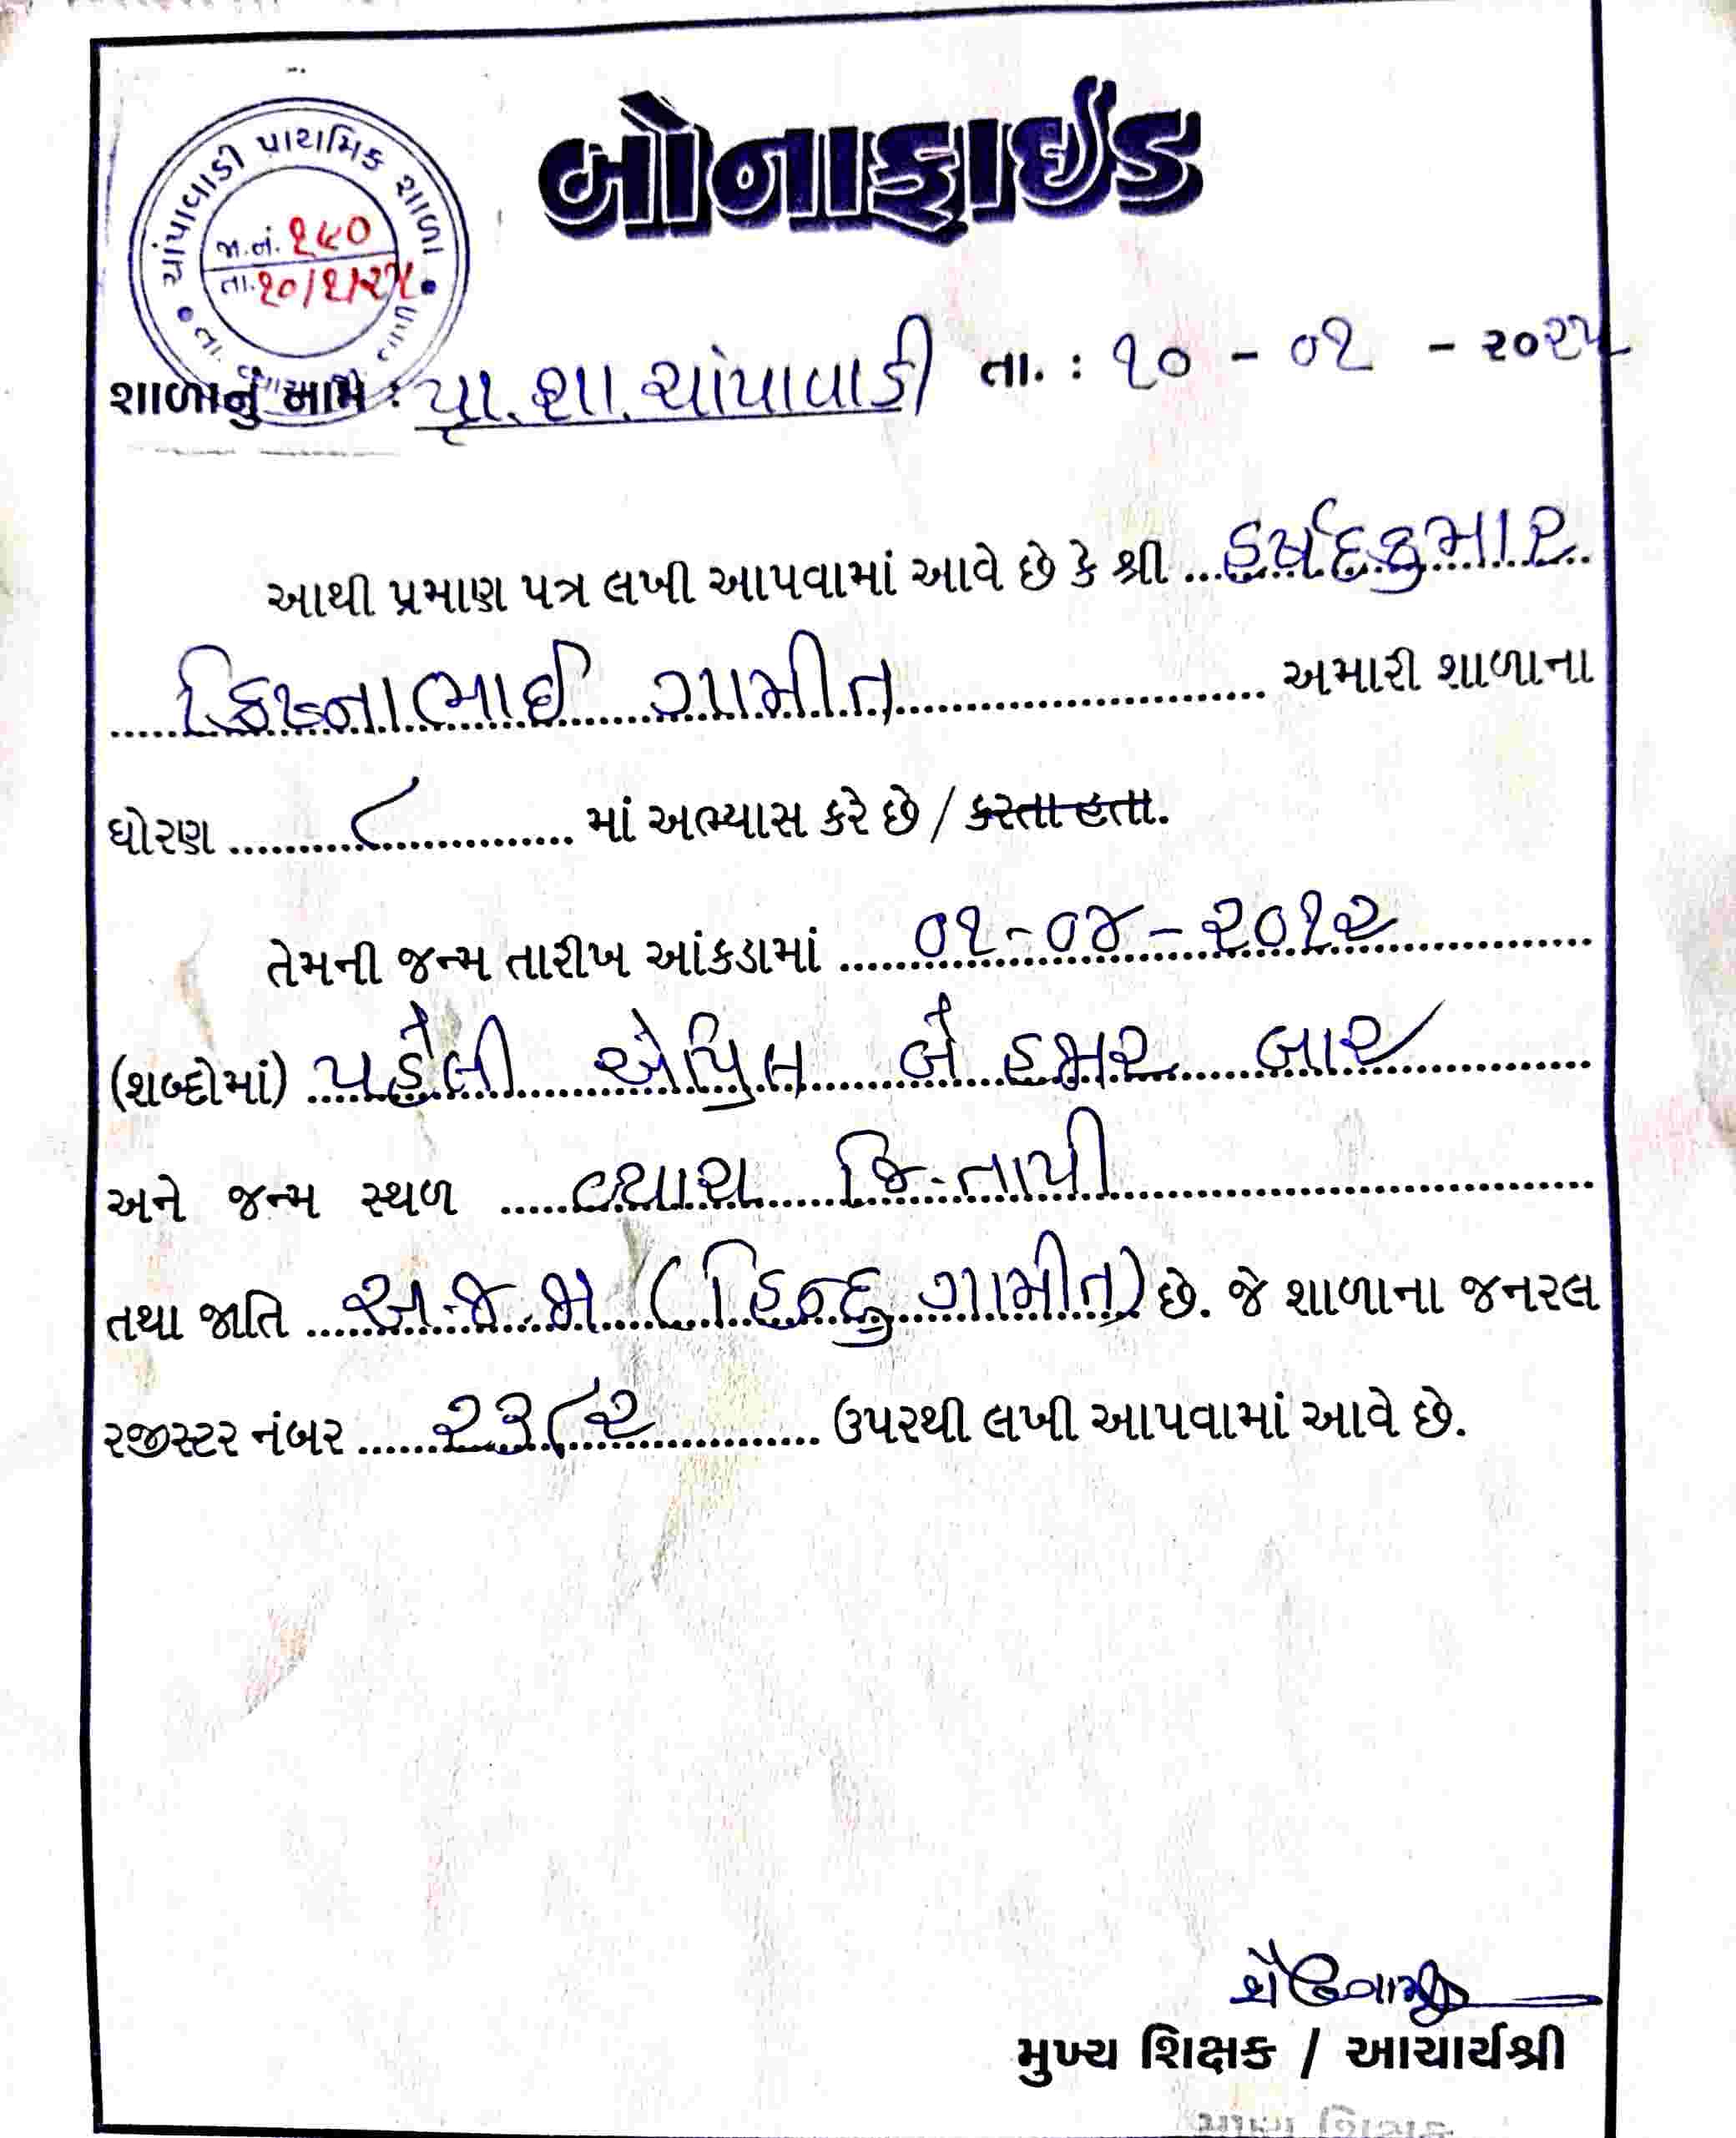 બોનાફાઈડ
ચાંપાવાડી પ્રાથમિક શાળા
જા.નં. ૧૯૦
તા. ૧૦/૧/૨૫
શાળાનું નામ : પ્રા. શા. ચાંપાવાડી તા. : ૧૦ - ૦૧ - ૨૦૨૫
આથી પ્રમાણ પત્ર લખી આપવામાં આવે છે કે શ્રી હર્ષદકુમાર
ક્રિષ્નાભાઈ ગામીત અમારી શાળાના
ધોરણ ૮ માં અભ્યાસ કરે છે / કરતા હતા.
તેમની જન્મ તારીખ આંકડામાં ૦૧-૦૪-૨૦૧૨
(શબ્દોમાં) પહેલી એપ્રિલ બે હજાર બાર
અને જન્મ સ્થળ વ્યારા જિ-તાપી
તથા જાતિ અ.જ.જા (હિન્દુ ગામીત) છે. જે શાળાના જનરલ
રજીસ્ટર નંબર ૨૩૮૨ ઉપરથી લખી આપવામાં આવે છે.
મુખ્ય શિક્ષક / આચાર્યશ્રી